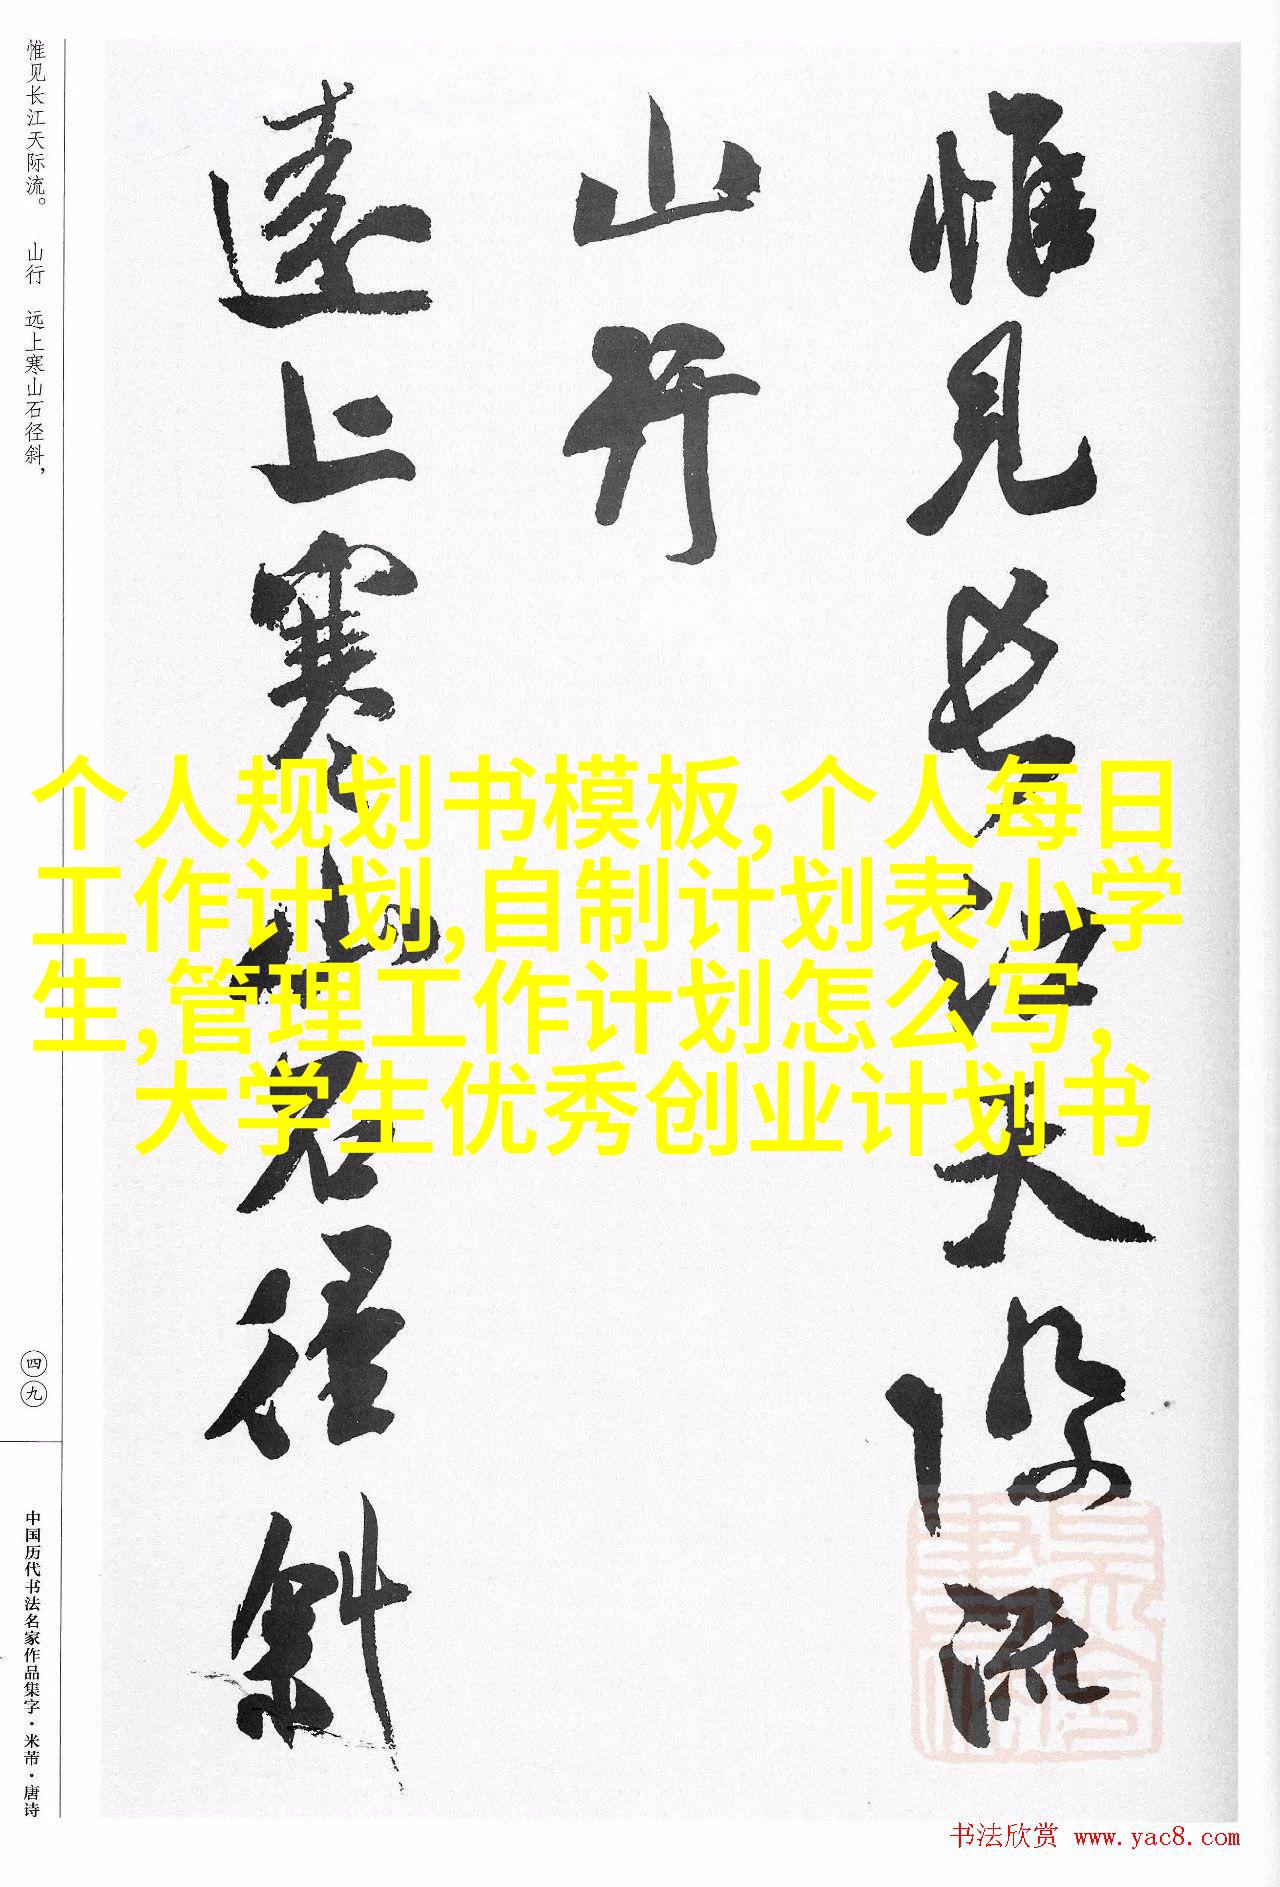 惟见长江天际流。 山行 远上寒山石径斜，
四九
中国历代书法名家作品集字·米芾·唐诗
惟見長江天際流
山行
遠上寒山石徑斜
个人规划书模板,个人每日
工作计划,自制计划表小学
生,管理工作计划怎么写,
大学生优秀创业计划书
书法欣赏 www.yac8.com